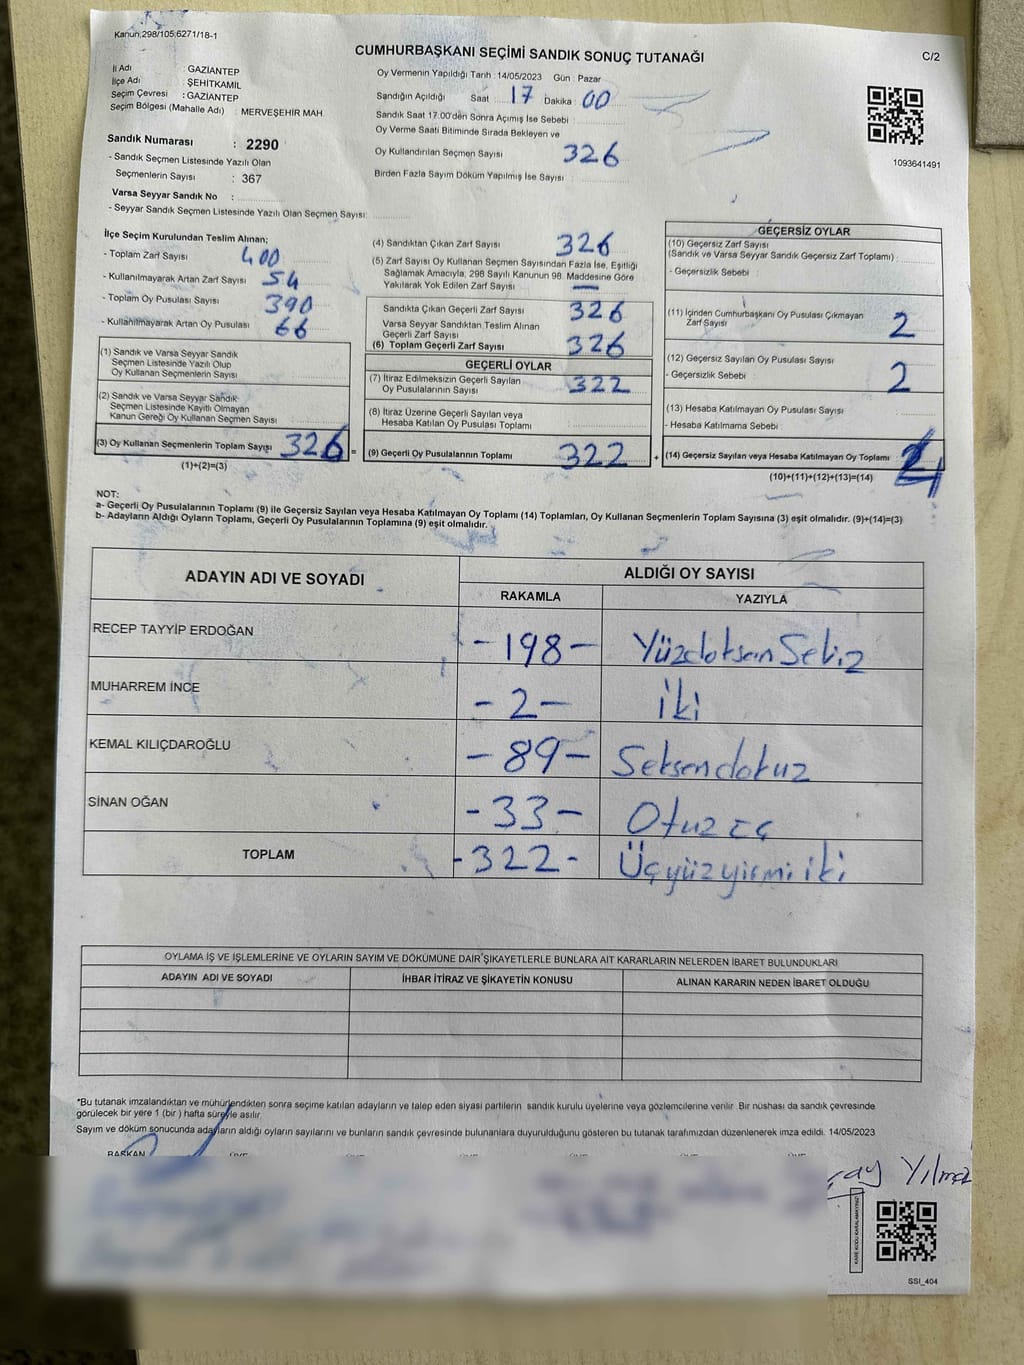 Kanun:298/105;6271/18-1
CUMHURBAŞKANI SEÇİMİ SANDIK SONUÇ TUTANAĞI
C/2
İl Adı : GAZİANTEP
İlçe Adı : ŞEHİTKAMİL
Seçim Çevresi : GAZİANTEP
Seçim Bölgesi (Mahalle Adı) : MERVEŞEHİR MAH
Sandık Numarası : 2290
- Sandık Seçmen Listesinde Yazılı Olan
Seçmenlerin Sayısı : 367
Varsa Seyyar Sandık No :
- Seyyar Sandık Seçmen Listesinde Yazılı Olan Seçmen Sayısı:
Oy Vermenin Yapıldığı Tarih :14/05/2023 Gün : Pazar
Sandığın Açıldığı Saat 17 Dakika 00
Sandık Saat 17.00'den Sonra Açımış İse Sebebi :
Oy Verme Saati Bitiminde Sırada Bekleyen ve
Oy Kullandırılan Seçmen Sayısı 326
Birden Fazla Sayım Döküm Yapılmış İse Sayısı :
1093641491
İlçe Seçim Kurulundan Teslim Alınan;
- Toplam Zarf Sayısı 400
- Kullanılmayarak Artan Zarf Sayısı 54
- Toplam Oy Pusulası Sayısı 390
- Kullanılmayarak Artan Oy Pusulası 66
(1) Sandık ve Varsa Seyyar Sandık
Seçmen Listesinde Yazılı Olup
Oy Kullanan Seçmenlerin Sayısı
(2) Sandık ve Varsa Seyyar Sandık
Seçmen Listesinde Kayıtlı Olmayan
Kanun Gereği Oy Kullanan Seçmen Sayısı
(3) Oy Kullanan Seçmenlerin Toplam Sayısı 326 =
(1)+(2)=(3)
(4) Sandıktan Çıkan Zarf Sayısı 326
(5) Zarf Sayısı Oy Kullanan Seçmen Sayısından Fazla İse, Eşitliği
Sağlamak Amacıyla, 298 Sayılı Kanunun 98. Maddesine Göre
Yakılarak Yok Edilen Zarf Sayısı —
Sandıkta Çıkan Geçerli Zarf Sayısı 326
Varsa Seyyar Sandıktan Teslim Alınan
Geçerli Zarf Sayısı
(6) Toplam Geçerli Zarf Sayısı 326
GEÇERLİ OYLAR
(7) İtiraz Edilmeksizin Geçerli Sayılan
Oy Pusulalarının Sayısı 322
(8) İtiraz Üzerine Geçerli Sayılan veya
Hesaba Katılan Oy Pusulası Toplamı
(9) Geçerli Oy Pusulalarının Toplamı 322 +
GEÇERSİZ OYLAR
(10) Geçersiz Zarf Sayısı
(Sandık ve Varsa Seyyar Sandık Geçersiz Zarf Toplamı) :
- Geçersizlik Sebebi :
(11) İçinden Cumhurbaşkanı Oy Pusulası Çıkmayan
Zarf Sayısı 2
(12) Geçersiz Sayılan Oy Pusulası Sayısı
- Geçersizlik Sebebi : 2
(13) Hesaba Katılmayan Oy Pusulası Sayısı
- Hesaba Katılmama Sebebi :
(14) Geçersiz Sayılan veya Hesaba Katılmayan Oy Toplamı 4
(10)+(11)+(12)+(13)=(14)
NOT:
a- Geçerli Oy Pusulalarının Toplamı (9) ile Geçersiz Sayılan veya Hesaba Katılmayan Oy Toplamı (14) Toplamları, Oy Kullanan Seçmenlerin Toplam Sayısına (3) eşit olmalıdır. (9)+(14)=(3)
b- Adayların Aldığı Oyların Toplamı, Geçerli Oy Pusulalarının Toplamına (9) eşit olmalıdır.
ADAYIN ADI VE SOYADI
ALDIĞI OY SAYISI
RAKAMLA YAZIYLA
RECEP TAYYİP ERDOĞAN -198- Yüzdoksan Sekiz
MUHARREM İNCE -2- iki
KEMAL KILIÇDAROĞLU -89- Seksendokuz
SİNAN OĞAN -33- Otuz üç
TOPLAM -322- Üçyüzyirmi iki
OYLAMA İŞ VE İŞLEMLERİNE VE OYLARIN SAYIM VE DÖKÜMÜNE DAİR ŞİKAYETLERLE BUNLARA AİT KARARLARIN NELERDEN İBARET BULUNDUKLARI
ADAYIN ADI VE SOYADI İHBAR İTİRAZ VE ŞİKAYETİN KONUSU ALINAN KARARIN NEDEN İBARET OLDUĞU
*Bu tutanak imzalandıktan ve mühürlendikten sonra seçime katılan adayların ve talep eden siyasi partilerin sandık kurulu üyelerine veya gözlemcilerine verilir. Bir nüshası da sandık çevresinde
görülecek bir yere 1 (bir) hafta süreyle asılır.
Sayım ve döküm sonucunda adayların aldığı oyların sayılarını ve bunların sandık çevresinde bulunanlara duyurulduğunu gösteren bu tutanak tarafımızdan düzenlenerek imza edildi. 14/05/2023
BAŞKAN ÜYE ÜYE ÜYE ÜYE ÜYE
Yılmaz
KARE KODU KARALAMAYINIZ
SSI_404